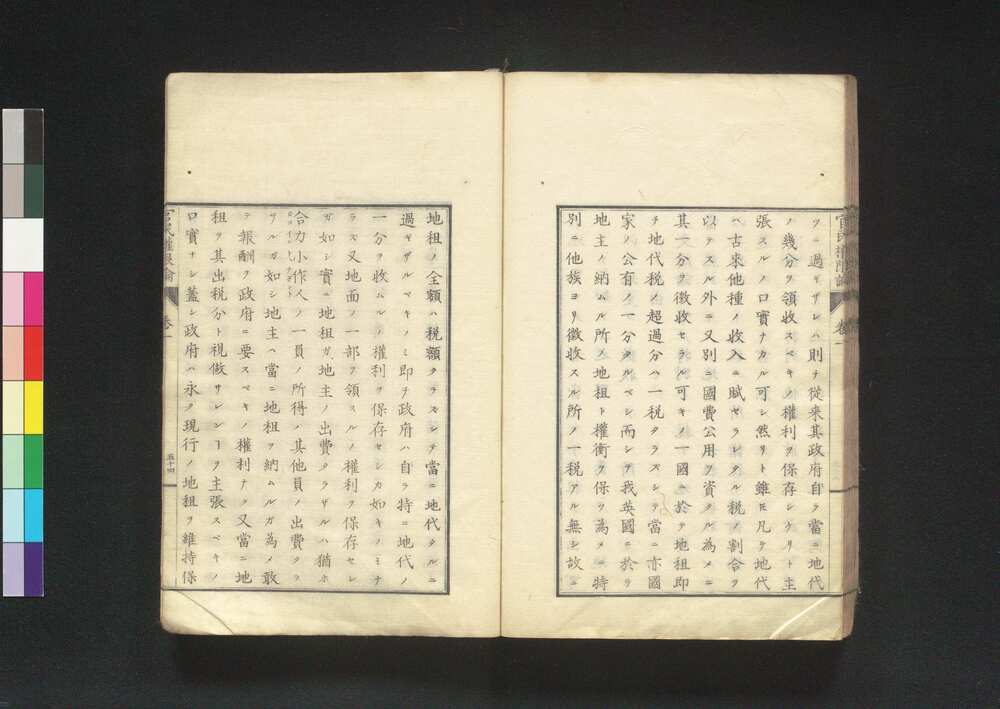 ツニ過ギザレハ則チ從来其政府自ラ當ニ地代
ノ幾分ヲ領收スベキノ權利ヲ保存シケリト主
張スルノ口實ナカル可シ然リト雖𪜈凡テ地代
ハ古來他種ノ收入ニ賦セラレタル税ノ割合ヲ
以テスル外ニ又別ニ國費公用ヲ資クル為メニ
其一分ヲ徴收セラル可キノ一國ニ於テ地租即
チ地代税ノ超過分ハ一税タラズシテ當ニ亦國
家ノ公有ノ一分タルベシ而シテ我英國ニ於ヲ
地主ノ納ムル所ノ地租ト權衡ヲ保ツ為メニ特
別ニ他族ヨリ徴收スル所ノ一税アル無シ故ニ
官民權限論
卷一
地租ノ全額ハ税額タラズシテ當ニ地代タルニ
過ギザルベキノミ即チ政府ハ自ラ特ニ地代ノ
一分ヲ收ムルノ權利ヲ保存セシカ如キノミナ
ラズ又地面ノ一部ヲ領スルノ權利ヲ保存セレ
ガ如シ實ニ地租ガ地主ノ出費タラザルハ猶ホ
合力小作人ノ一員ノ所得ノ其他員ノ出費タラ
ザルガ如シ地主ハ當ニ地租ヲ納ムルガ為メ敢
テ報酬ヲ政府ニ要スベキノ權利ナク又當ニ地
租ヲ其出税分ト視做サレンヿヲ主張スベキノ
口實ナシ蓋シ政府ハ永ク現行ノ地租ヲ維持保
官民權限論
卷一
五十四